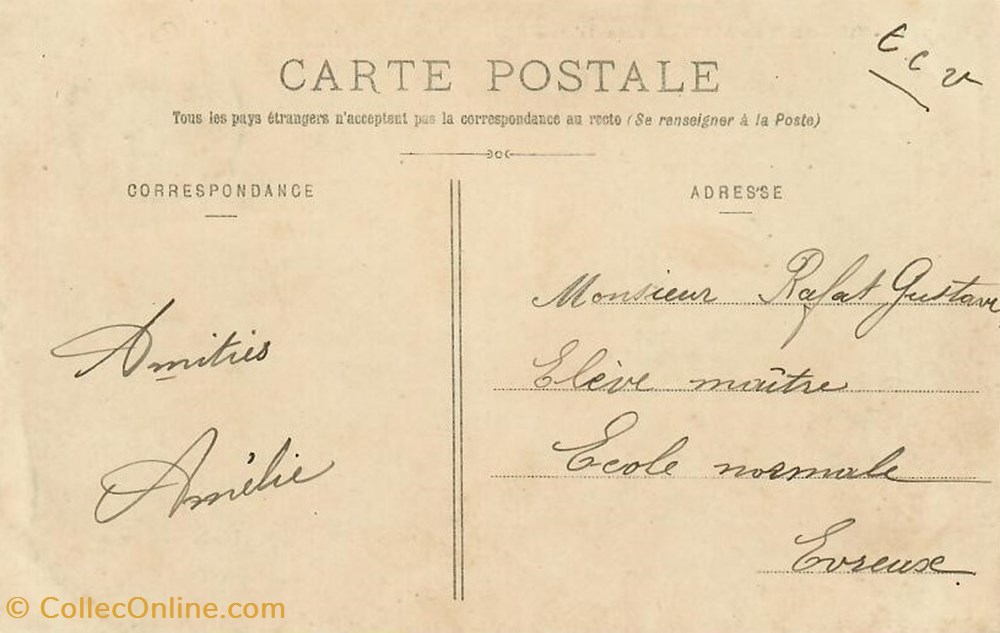 CARTE POSTALE
Tous les pays étrangers n'acceptent pas la correspondance au recto (Se renseigner à la Poste)
CORRESPONDANCE
Amitiés
Amélie
ADRESSE
Monsieur Rafat Gustave
Elève maître
Ecole normale
Evreux
© CollecOnline.com